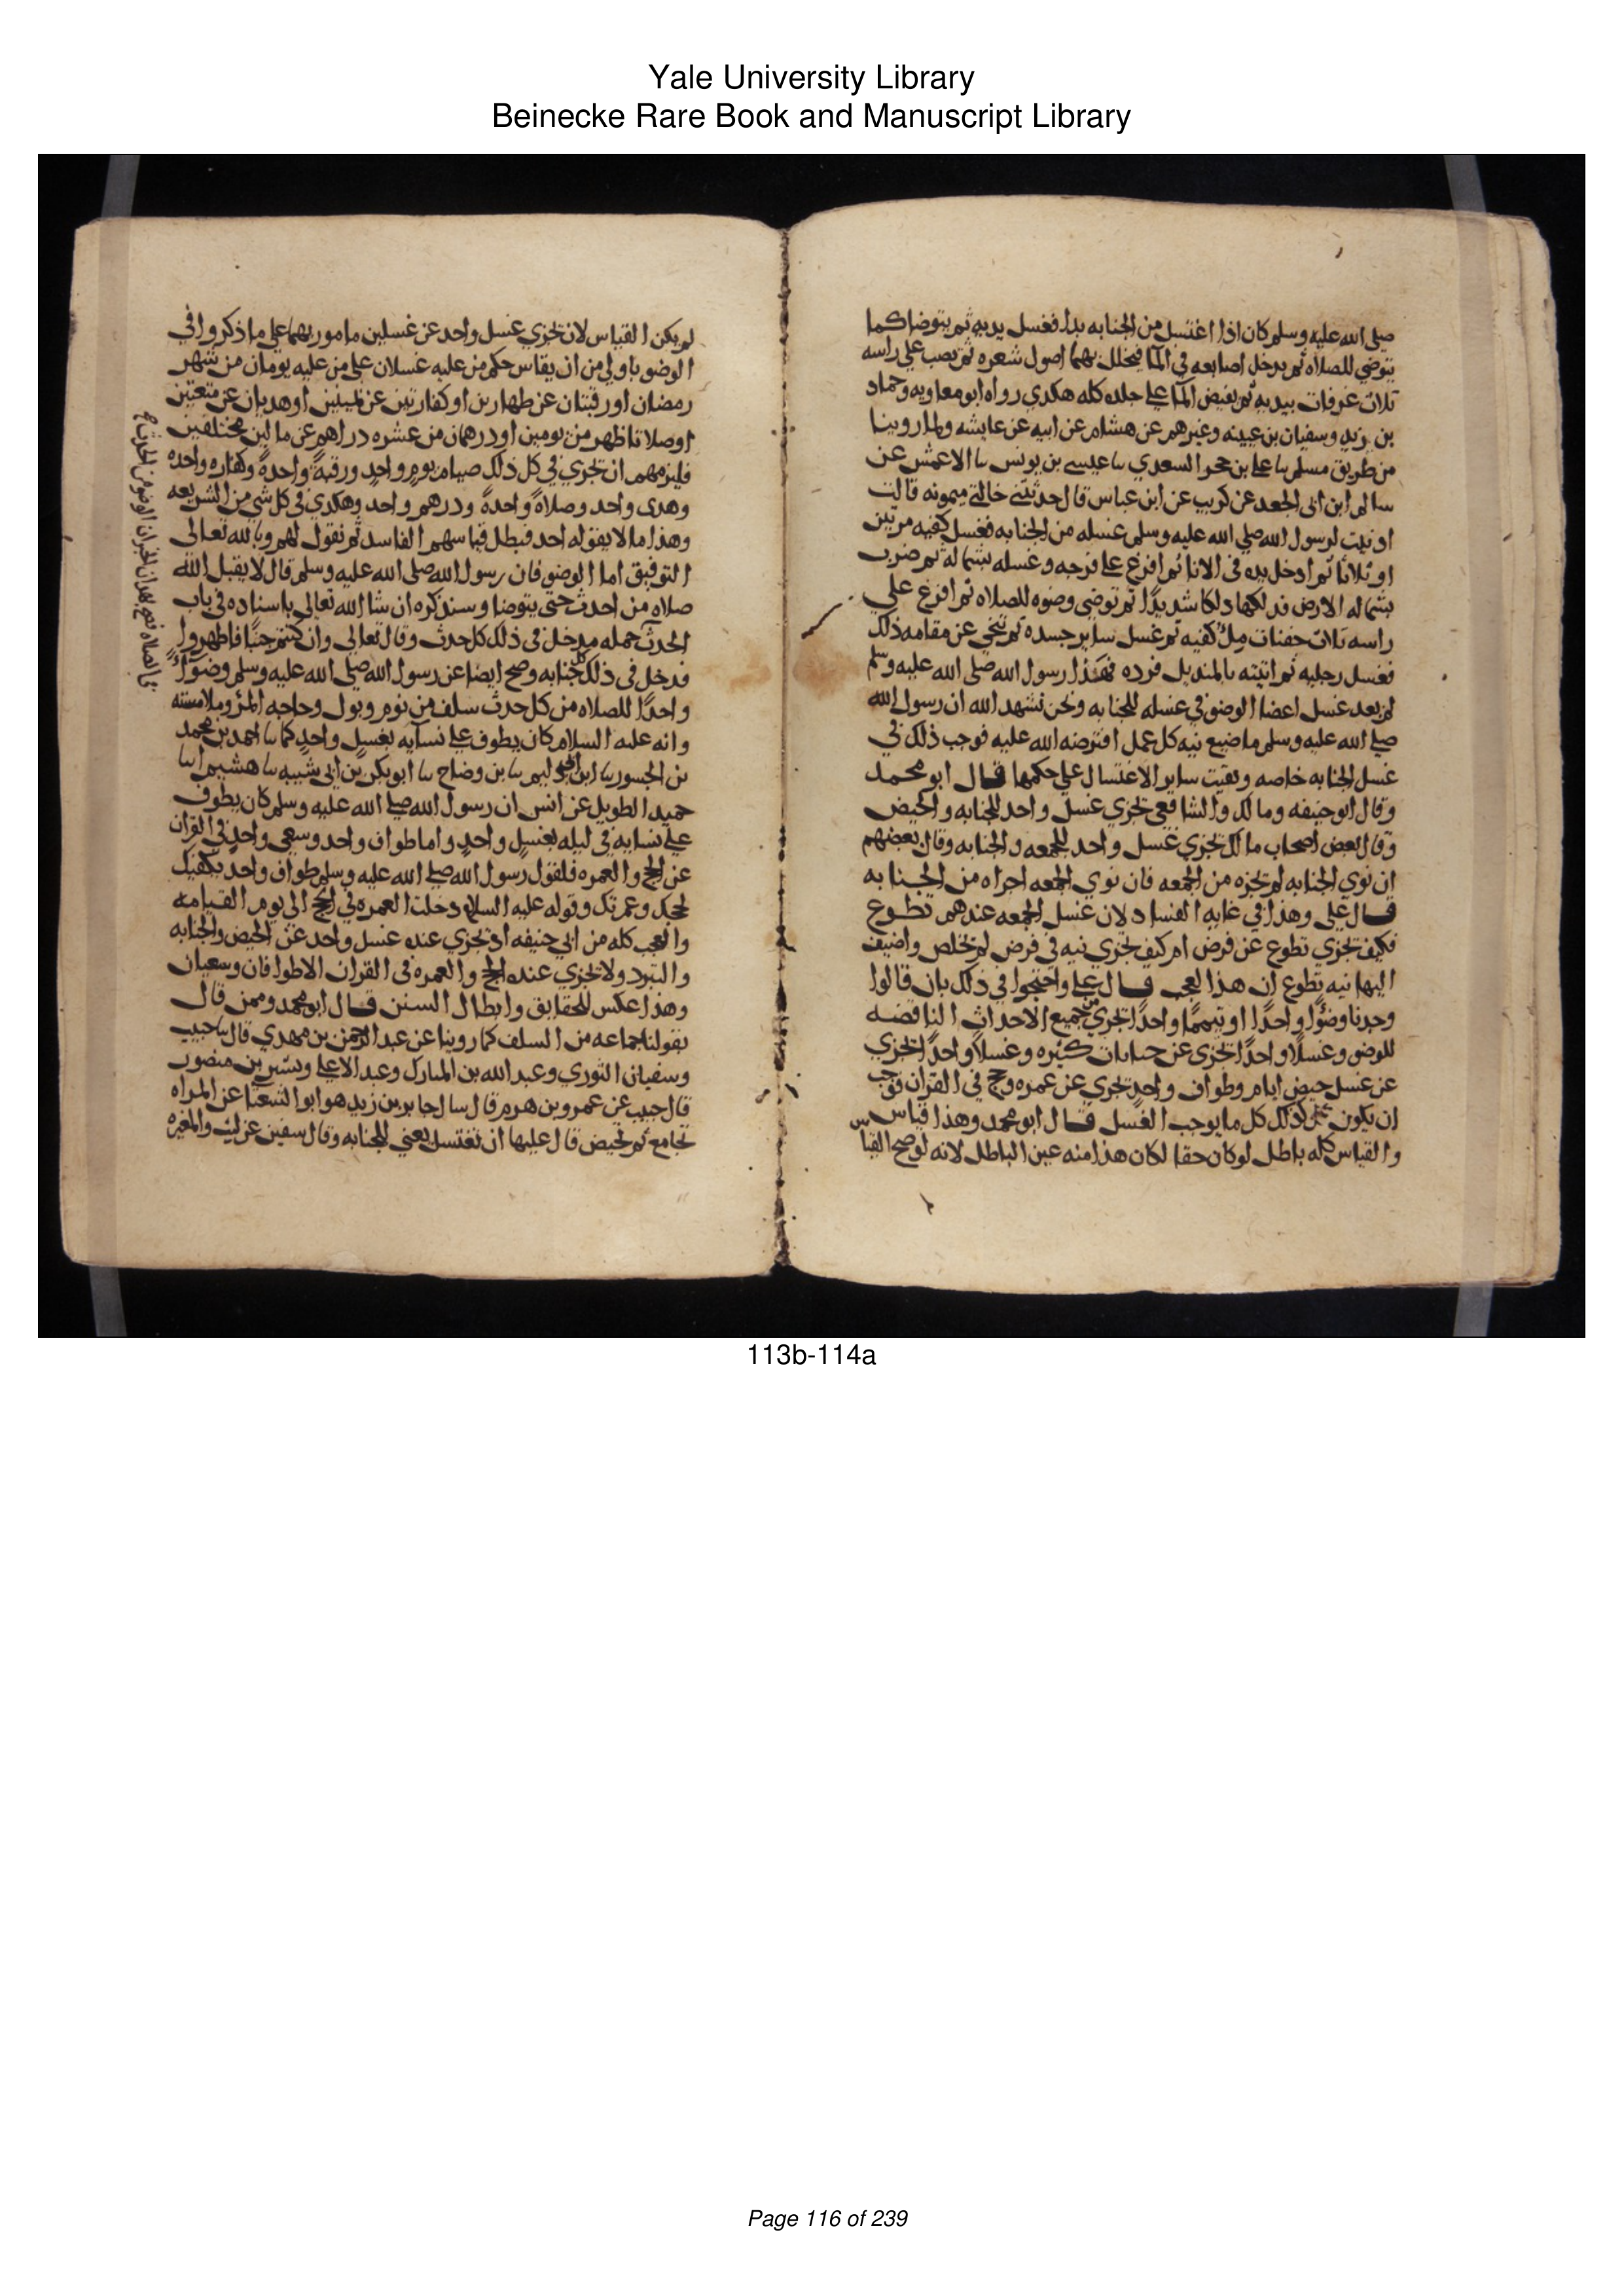 Yale University Library
Beinecke Rare Book and Manuscript Library
صلى الله عليه وسلم كان اذا اغتسل من الجنابه بدا فغسل يديه ثم يتوضا كما
يتوضى للصلاه ثم يدخل اصابعه فى الما فيخلل بهما اصول شعره ثم يصب على راسه
ثلاث غرفات بيديه ثم يفيض الما على جلده كله هكدي رواه ابو معاويه وحماد
بن زيد وسفيان بن عيينه وغيرهم عن هشام عن ابيه عن عايشه ولما روينا
من طريق مسلم نا على بن حجر السعدي نا عيسى بن يونس نا الاعمش عن
سالم ابن ابى الجعد عن كريب عن ابن عباس قال حدثتنى خالتى ميمونه قالت
ادنيت لرسول الله صلى الله عليه وسلم غسله من الجنابه فغسل كفيه مرتين
او ثلاثا ثم ادخل يده فى الانا ثم افرغ على فرجه وغسله بشماله ثم ضرب
بشماله الارض فدلكها دلكا شديدًا ثم توضى وضوه للصلاه ثم افرغ على
راسه ثلاث حفنات ملْ كفيه ثم غسل ساير جسده ثم تنحى عن مقامه ذلك
فغسل رجليه ثم اتيته بالمنديل فرده فهذا رسول الله صلى الله عليه وسلم
لم يعد غسل اعضا الوضو فى غسله للجنابه ونحن نشهد الله ان رسول الله
صلى الله عليه وسلم ما ضيع نيه كل عمل افترضه الله عليه فوجب ذلك فى
غسل الجنابه خاصه وبقيت ساير الاغتسال على حكمها قال ابو محمد
وقال ابو حنيفه ومالك والشافعى تجزي غسل واحد للجنابه والحيض
وقال بعض اصحاب مالك تجزي غسل واحد للجمعه والجنابه وقال بعضهم
ان نوي الجنابه لم تجزه من الجمعه فان نوي الجمعه اجزاه من الجنابه
قال على وهذا فى غايه الفساد لان غسل الجمعه عندهم تطوع
فكيف تجزي تطوع عن فرض ام كيف تجزي نيه فى فرض لم تخلص واضيف
اليها نيه تطوع ان هذا لعجب قال على واحتجوا فى ذلك بان قالوا
وجدنا وضوًا واحدًا او تيممًا واحدًا تجزي من جميع الاحداث الناقضه
للوضو وغسلًا واحدًا تجزى عن جنابات كثيره وغسلًا واحدًا تجزي
عن غسل حيض ايام وطواف واحد تجري عن عمره وحج فى القران فوجب
ان يكون كذلك كل ما يوجب الغسل قال ابو محمد وهذا قياس
والقياس كله باطل لو كان حقا لكان هذا منه عين الباطل لانه لو صح القياس
لم يكن القياس لان تجزي غسل واحد عن غسلين مامور بهما على ما ذكروا فى
الوضو باولى من ان يقاس حكم من عليه غسلان على من عليه يومان من شهر
رمضان او رقبتان عن ظهارين او كفارتين عن يمينين او هديان عن متعتين
او صلاتا ظهر من يومين او درهمان من عشره دراهم عن مالين مختلفين
فليزمهم ان تجزي فى كل ذلك صيام يوم واحد ورقبة واحدة وكفاره واحده
وهدى واحد وصلاة واحدة ودرهم واحد وهكدي فى كل شى من الشريعه
وهذا ما لا يقوله احد فبطل قياسهم الفاسد ثم نقول لهم وبالله تعالى
التوفيق اما الوضو فان رسول الله صلى الله عليه وسلم قال لا يقبل الله
صلاه من احدث حتى يتوضا وسنذكره ان شا الله تعالى باسناده فى باب
الحدث جمله فدخل فى ذلك كل حدث وقال تعالى وان كنتم جنبًا فاطهروا
فدخل فى ذلك كل جنابه وصح ايضا عن رسول الله صلى الله عليه وسلم وضوًا
واحدًا للصلاه من كل حدث سلف من نوم وبول وحاجه المرْ وملامسته
وانه عليه السلام كان يطوف على نسايه بغسل واحد كما نا احمد بن محمد
بن الجسور نا ابن ابى دليم نا بن وضاح نا ابو بكر بن ابى شيبه نا هشيم انا
حميد الطويل عن انس ان رسول الله صلى الله عليه وسلم كان يطوف
على نسايه فى ليله بغسل واحد واما طواف واحد وسعى واحد فى القران
عن الحج والعمره فلقول رسول الله صلى الله عليه وسلم طواف واحد يكفيك
لحجك وعمرتك وقوله عليه السلام دخلت العمره فى الحج الى يوم القيامه
والعجب كله من ابى حنيفه اذ تجزي عنده غسل واحد عن الحيض والجنابه
والتبرد ولا تجزي عنده الحج والعمره فى القران الا طوافان وسعيان
وهذا عكس للحقايق وابطال السنن قال ابو محمد وممن قال
بقولنا جماعه من السلف كما روينا عن عبد الرحمن بن مهدي قال نا حبيب
وسفيان الثوري وعبد الله بن المبارك وعبد الاعلى وبشر بن منصور
قال حبيب عن عمرو بن هرم قال سال جابر بن زيد هو ابو الشعثا عن المراه
تجامع ثم تحيض قال عليها ان تغتسل يعنى للجنابه وقال سفين عن ليث والمغيره
113b-114a
Page 116 of 239